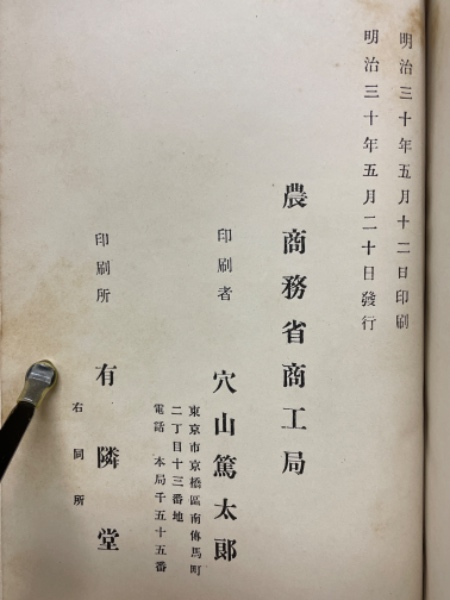 明治三十年五月十二日印刷
明治三十年五月二十日發行
農商務省商工局
印刷者 穴山篤太郎
東京市京橋區南傳馬町
二丁目十三番地
電話 本局千五十五番
印刷所 有隣堂
右同所